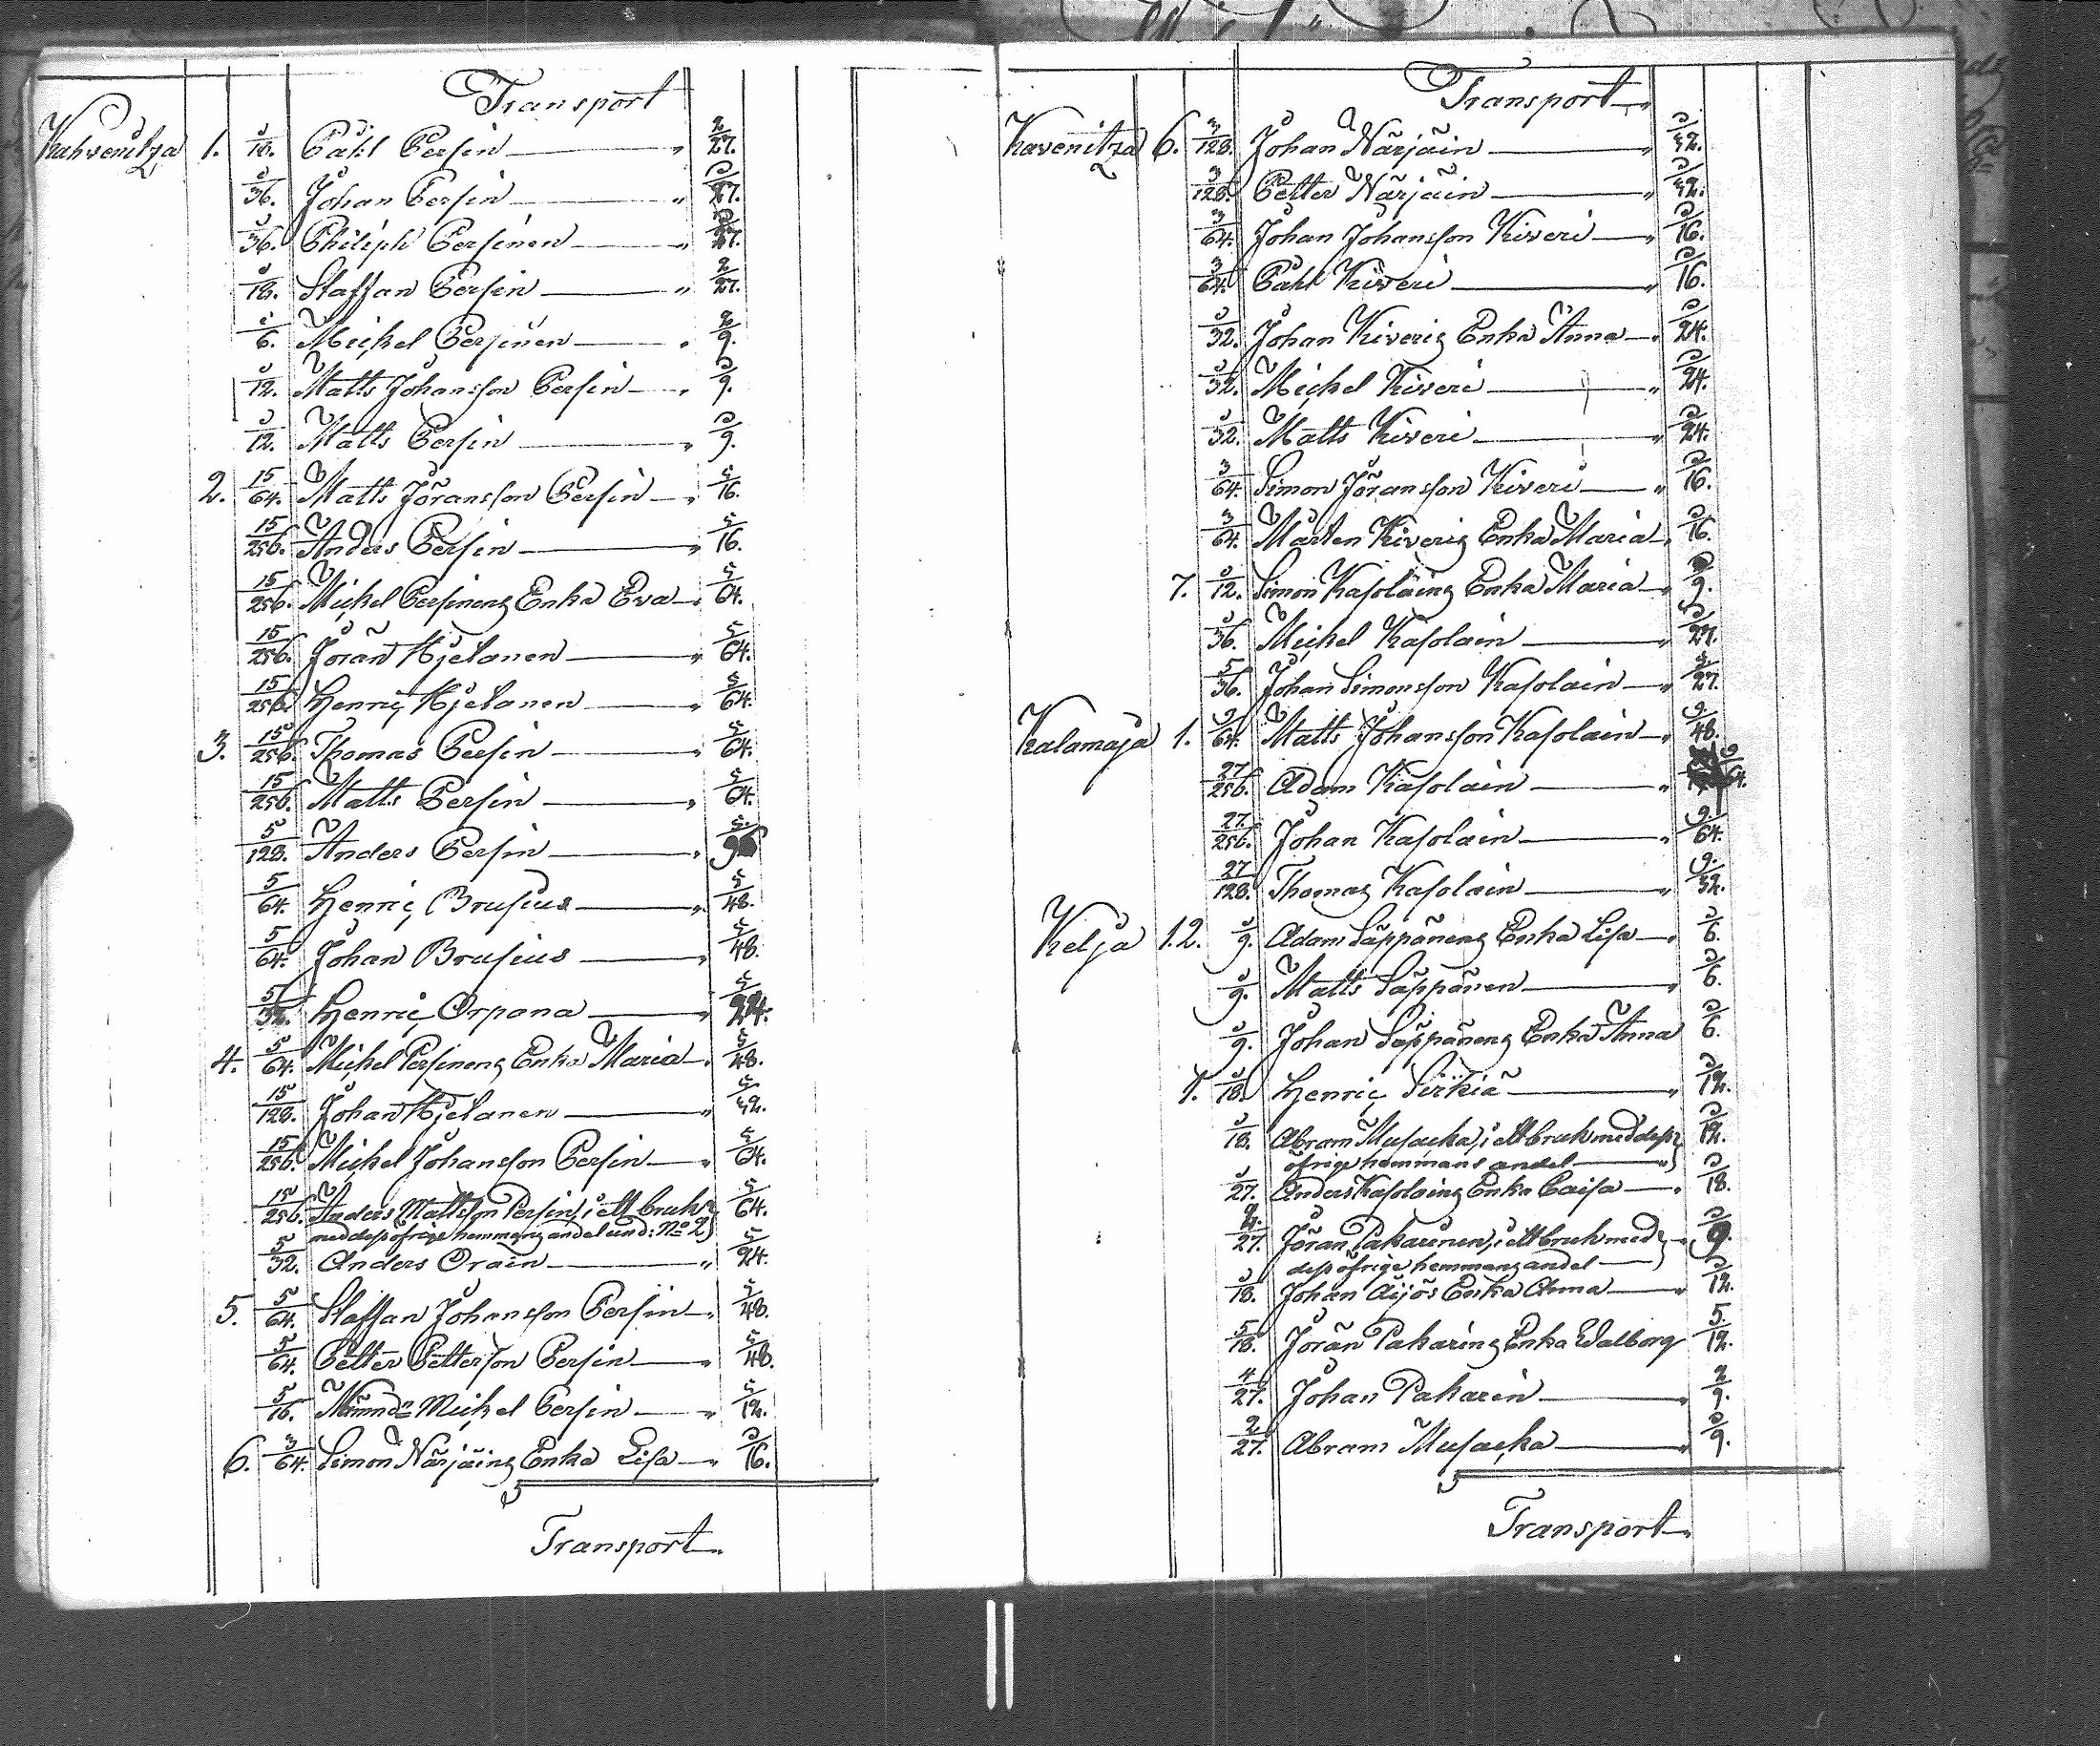 Transport
Kahvenitza 1. 1/18. Påhl Persin — " 2/27.
1/36. Johan Persin — " 1/27.
1/36. Philiph Persinen — " 1/27.
1/18. Staffan Persin — " 2/27.
1/6. Michel Persinen — " 2/9.
1/12. Matts Johansson Persin — " 1/9.
1/12. Matts Persin — " 1/9.
2. 15/64. Matts Jöransson Persin — " 5/16.
15/256. Anders Persin — " 5/16.
15/256. Michel Persinens Enka Eva — " 5/64.
15/256. Jöran Hjelanen — " 5/64.
15/256. Henric Hjelanen — " 5/64.
3. 15/256. Thomas Persin — " 5/64.
15/256. Matts Persin — " 5/64.
5/128. Anders Persin — " 5/96
5/64. Henric Brusius — " 5/48.
5/64. Johan Brusius — " 5/48.
5/32. Henric Orpana — " 5/24.
4. 5/64. Michel Persinens Enka Maria — " 5/48.
15/128. Johan Hjelanen — " 5/32.
15/256. Michel Johansson Persin — " 5/64.
15/256. Anders Mattsson Persin, i ett bruk 5/64.
med dess öfrige hemmans andel und: No 2
5/32. Anders Orain — " 5/24.
5. 5/64. Staffan Johansson Persin — " 5/48.
5/64. Petter Petterson Persin — " 5/48.
5/16. Nämnd: Michel Persin — " 5/12.
6. 3/64. Simon Närjäins Enka Lisa — " 1/16.
Transport
Transport
Kavenitza 6. 3/128. Johan Närjäin — " 1/32.
3/128. Petter Närjäin — " 1/32.
3/64. Johan Johansson Kiveri — " 1/16.
3/64. Påhl Kiveri — " 1/16.
1/32. Johan Kiveris Enka Anna — " 1/24.
1/32. Michel Kiveri — " 1/24.
1/32. Matts Kiveri — " 1/24.
3/64. Simon Jöransson Kiveri — " 1/16.
3/64. Mårten Kiveris Enka Maria — " 1/16.
7. 1/12. Simon Kasolains Enka Maria — " 1/9.
1/36. Michel Kasolain — " 1/27.
5/36. Johan Simonsson Kasolain — " 5/27.
Kalamaja 1. 9/64. Matts Johansson Kasolain — " 9/48.
27/256. Adam Kasolain — " 9/64.
27/256. Johan Kasolain — " 9/64.
27/128. Thomas Kasolain — " 9/32.
Kelja 1.2. 1/9. Adam Säppänens Enka Lisa — " 1/6.
1/9. Matts Säppänen — " 1/6.
1/9. Johan Säppänens Enka Anna 1/6.
1/18. Henric Sirkiä — " 1/12.
1/18. Abram Musacka, i ett bruk med dess 1/12.
öfrige hemmans andel — "
1/27. Anders Kasolains Enka Caisa — " 1/18.
2/27. Jöran Pakarinen, i ett bruk med — " 1/9.
dess öfrige hemmans andel —
1/18. Johan Äijös Enka Anna — " 1/12.
5/18. Jöran Pakarins Enka Walborg 5/12.
4/27. Johan Pakarin — " 2/9.
2/27. Abram Musacka — " 1/9.
Transport